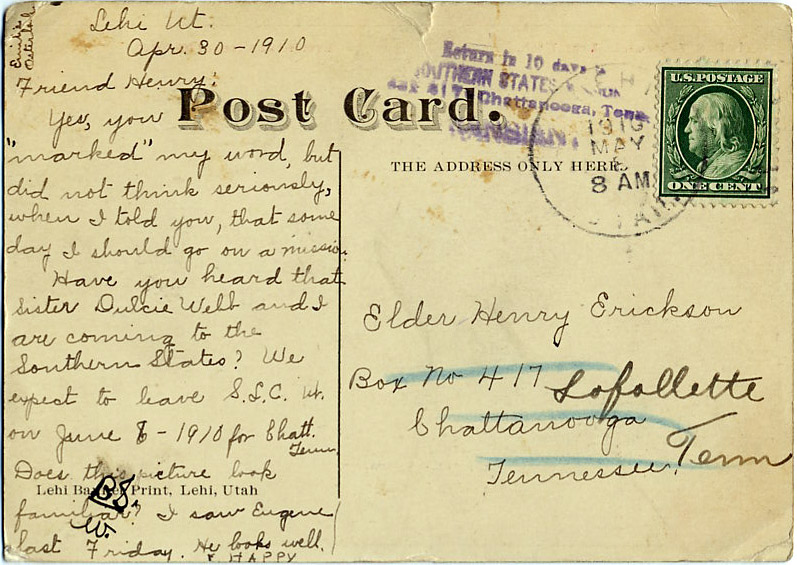 Lehi Ut.
Apr. 30 - 1910
Friend Henry:
Yes, you
"marked" my word, but
did not think seriously,
when I told you, that some
day I should go on a mission.
Have you heard that
Sister Dulcie Webb and I
are coming to the
Southern States? We
expect to leave S.L.C. Ut.
on June 6 - 1910 for Chatt.
Tenn.
Does this picture look
familiar? I saw Eugene
last Friday. He looks well,
& HAPPY
Post Card.
THE ADDRESS ONLY HERE.
Return in 10 days
SOUTHERN STATES
Box 417 Chattanooga, Tenn.
1910
MAY
8 AM
UTAH
U.S. POSTAGE
ONE CENT
Elder Henry Erickson
Box No 417
Lafollette
Chattanooga
Tenn
Tennessee.
Lehi Banner Print, Lehi, Utah